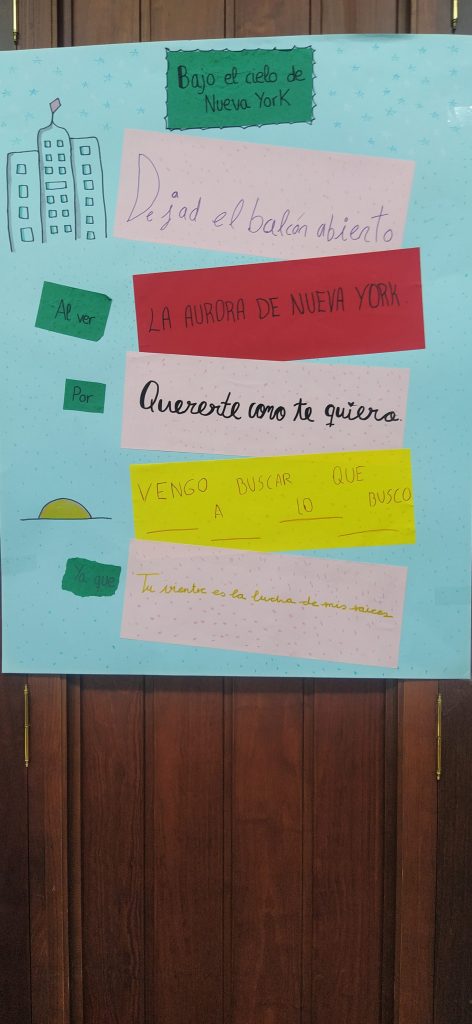 Bajo el cielo de
Nueva York
Dejad el balcón abierto
Al ver
LA AURORA DE NUEVA YORK
Por
Quererte como te quiero.
VENGO A BUSCAR lO QUE BUSCO
Ya que
Tu vientre es la lucha de mis raices